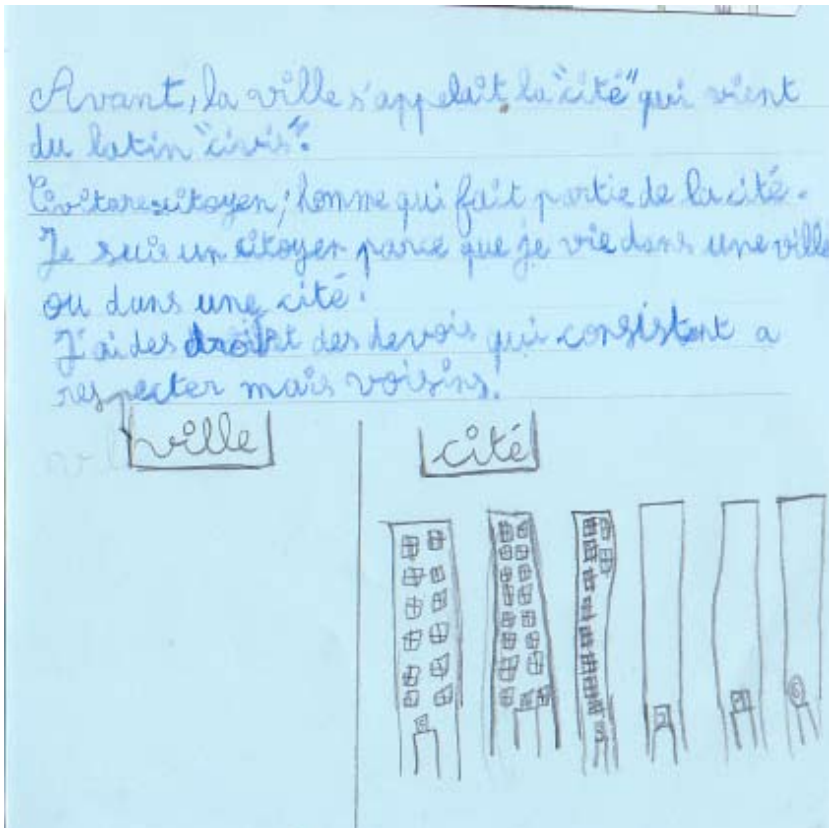 Avant, la ville s'appelait la "cité" qui vient
du latin "civis".
citoyen; homme qui fait partie de la cité.
Je suis un citoyen parce que je vie dans une ville
ou dans une cité.
J'ai des droit des devois qui consistent a
respecter mais voisins.
ville
cité